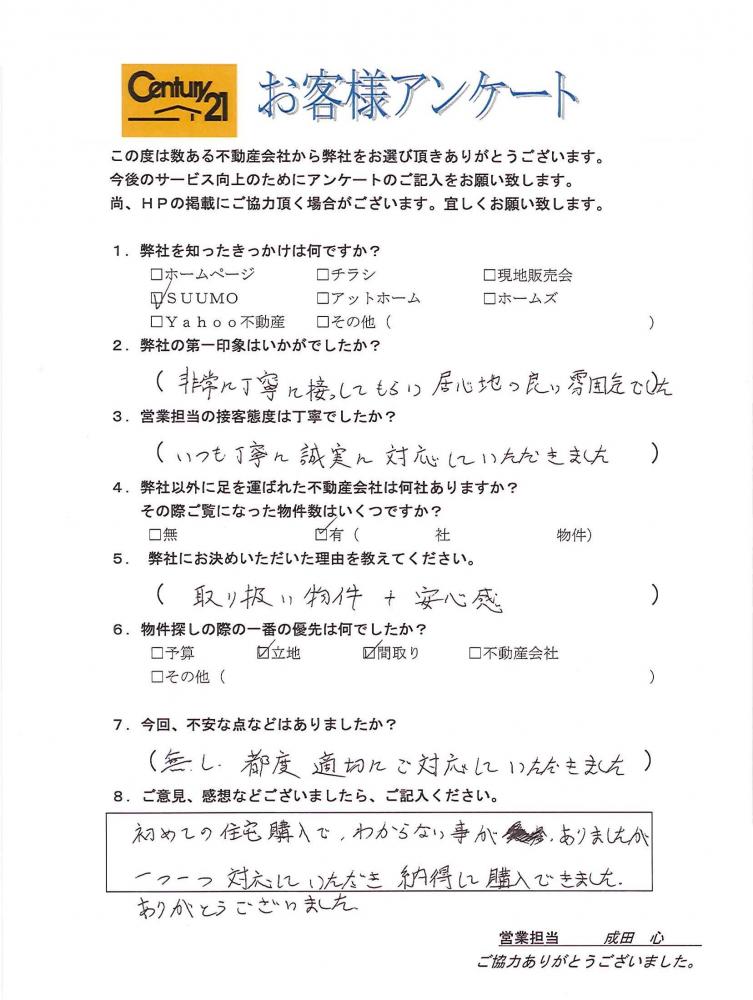 Century 21
お客様アンケート
この度は数ある不動産会社から弊社をお選び頂きありがとうございます。
今後のサービス向上のためにアンケートのご記入をお願い致します。
尚、HPの掲載にご協力頂く場合がございます。宜しくお願い致します。
1. 弊社を知ったきっかけは何ですか？
□ホームページ □チラシ □現地販売会
☑SUUMO □アットホーム □ホームズ
□Yahoo不動産 □その他（ ）
2. 弊社の第一印象はいかがでしたか？
（非常に丁寧に接してもらい居心地の良い雰囲気でした
3. 営業担当の接客態度は丁寧でしたか？
（いつも丁寧に誠実に対応していただきました）
4. 弊社以外に足を運ばれた不動産会社は何社ありますか？
その際ご覧になった物件数はいくつですか？
□無 ☑有（ 社 物件）
5. 弊社にお決めいただいた理由を教えてください。
（取り扱い物件 + 安心感）
6. 物件探しの際の一番の優先は何でしたか？
□予算 ☑立地 ☑間取り □不動産会社
□その他（ ）
7. 今回、不安な点などはありましたか？
（無し. 都度適切にご対応していただきました）
8. ご意見、感想などございましたら、ご記入ください。
初めての住宅購入で、わからない事が、ありましたが
一つ一つ対応していただき納得して購入できました.
ありがとうございました.
営業担当 成田 心
ご協力ありがとうございました。